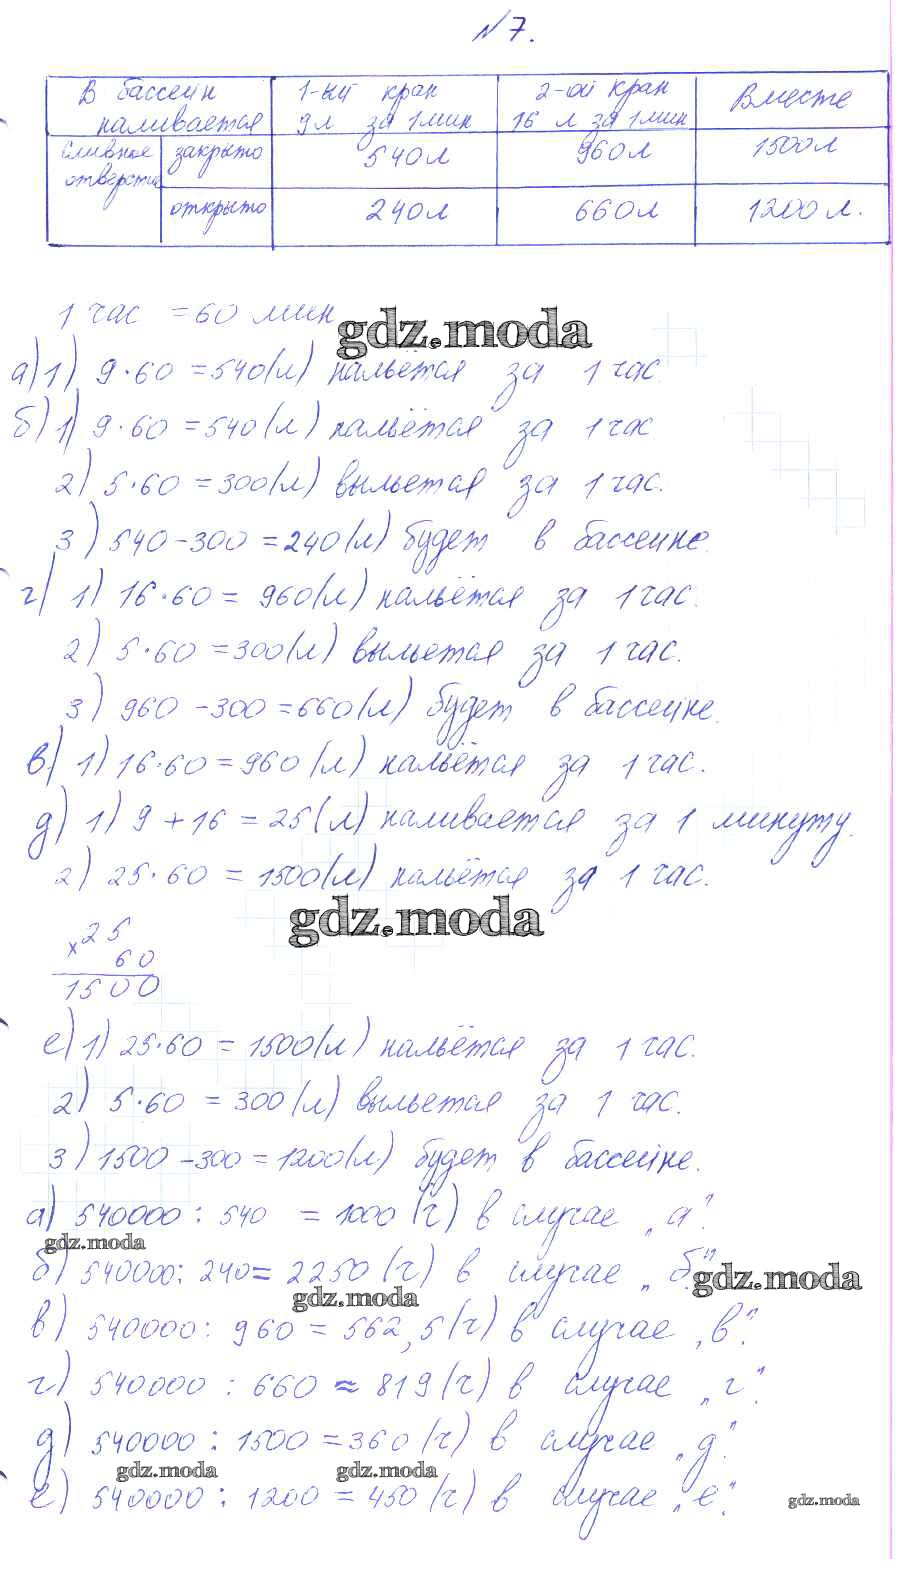 №7.
В бассейн наливается | 1-ый кран 9л за 1 мин | 2-ой кран 16 л за 1 мин | Вместе
сливное отверстие закрыто | 540л | 960л | 1500л
открыто | 240л | 660л | 1200л.
1 час = 60 мин
gdz.moda
а) 1) 9·60 = 540(л) нальётся за 1 час.
б) 1) 9·60 = 540(л) нальётся за 1 час
2) 5·60 = 300(л) выльется за 1 час.
3) 540-300 = 240(л) будет в бассейне.
г) 1) 16·60 = 960(л) нальётся за 1 час.
2) 5·60 = 300(л) выльется за 1 час.
3) 960-300 = 660(л) будет в бассейне.
в) 1) 16·60 = 960 (л) нальётся за 1 час.
д) 1) 9+16 = 25(л) наливается за 1 минуту.
2) 25·60 = 1500(л) нальётся за 1 час.
gdz.moda
×25
60
1500
е) 1) 25·60 = 1500(л) нальётся за 1 час.
2) 5·60 = 300(л) выльется за 1 час.
3) 1500-300 = 1200(л) будет в бассейне.
а) 540000 : 540 = 1000 (ч) в случае „а".
gdz.moda
б) 540000 : 240 = 2250 (ч) в случае „б".
gdz.moda
gdz.moda
в) 540000 : 960 = 562,5 (ч) в случае „в".
г) 540000 : 660 ≈ 819 (ч) в случае „г".
д) 540000 : 1500 = 360 (ч) в случае „д".
gdz.moda
gdz.moda
е) 540000 : 1200 = 450 (ч) в случае „е".
gdz.moda